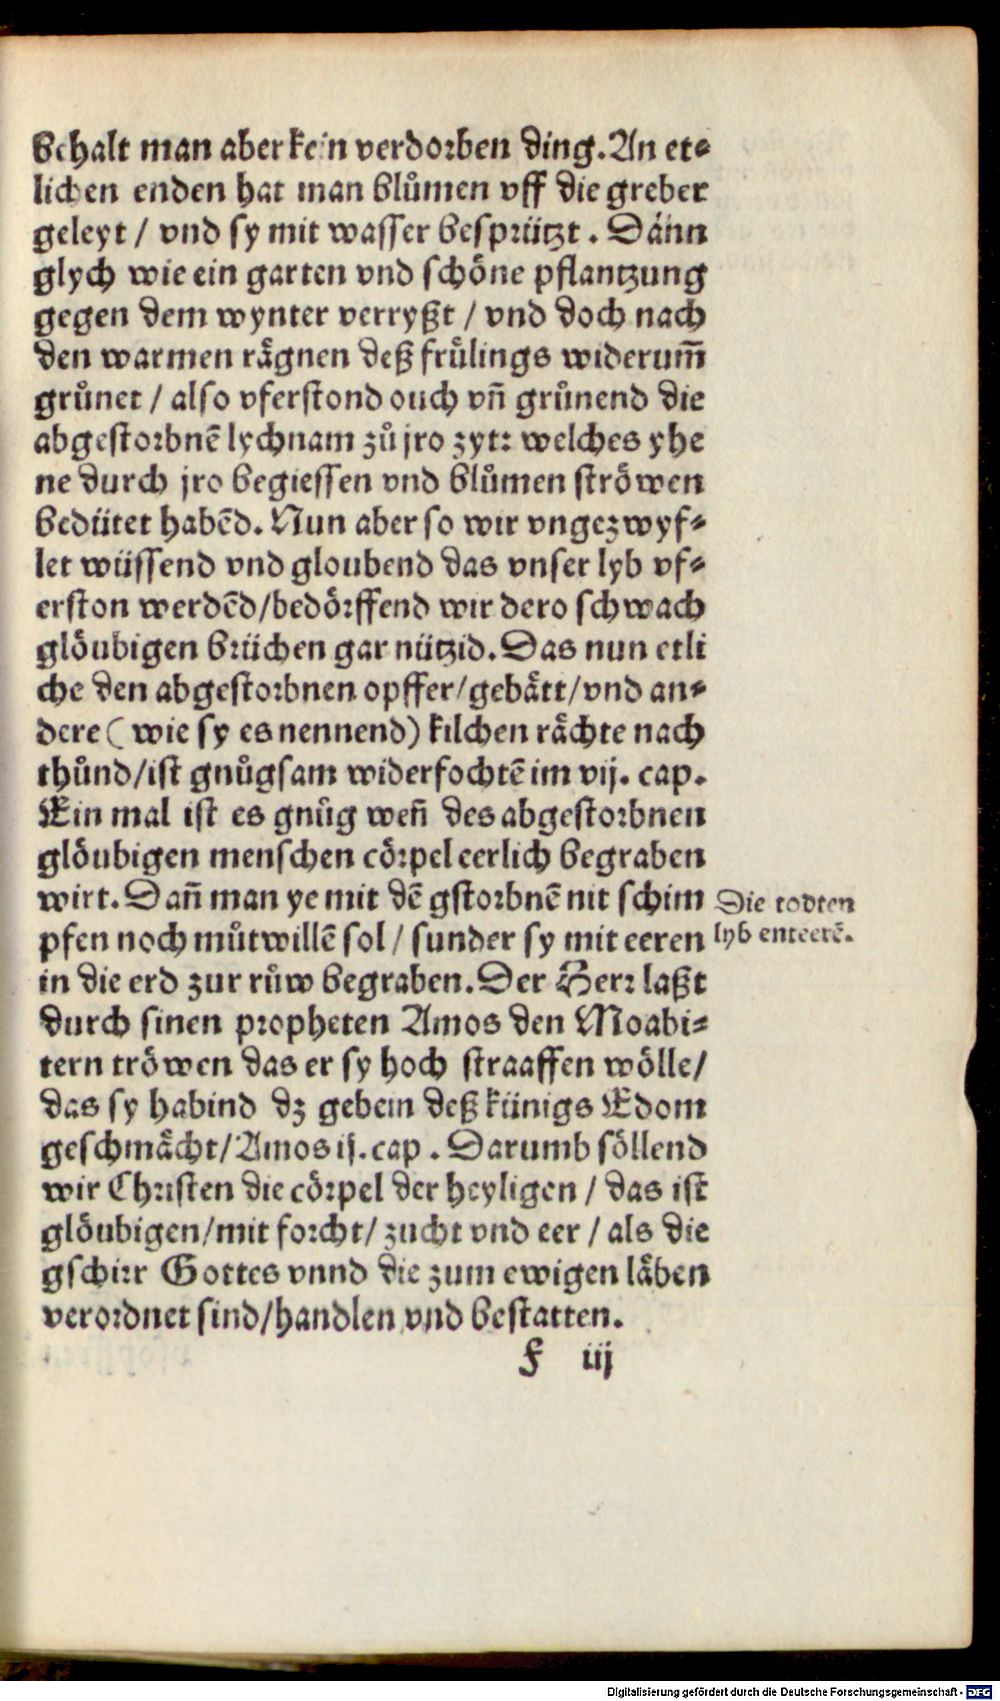 behalt man aber kein verdorben ding. An et⸗
lichen enden hat man blůmen vff die greber
geleyt / vnd sy mit wasser besprützt . Dann
glych wie ein garten vnd schöne pflantzung
gegen dem wynter verryßt / vnd doch nach
den warmen rägnen deß früͤlings widerum̄
grůnet / also vferstond ouch vn̄ grůnend die
abgestorbnē lychnam zů jro zyt: welches yhe
ne durch jro begiessen vnd blůmen ströwen
bedütet habēd. Nun aber so wir vngezwyf⸗
let wüssend vnd gloubend das vnser lyb vf⸗
erston werdēd/bedörffend wir dero schwach
glöubigen brüchen gar nützid. Das nun etli
che den abgestorbnen opffer/gebätt/vnd an⸗
dere ( wie sy es nennend) kilchen rächte nach
thůnd/ist gnůgsam widerfochtē im vij. cap.
Ein mal ist es gnůg wen̄ des abgestorbnen
glöubigen menschen cörpel eerlich begraben
wirt. Dan̄ man ye mit dē gstorbnē nit schim
pfen noch můtwillē sol / sunder sy mit eeren
in die erd zur růw begraben. Der Herr laßt
durch sinen propheten Amos den Moabi⸗
tern tröwen das er sy hoch straaffen wölle/
das sy habind dz gebein deß künigs Edom
geschmächt/Amos ij. cap . Darumb söllend
wir Christen die cörpel der heyligen / das ist
glöubigen/mit forcht/ zucht vnd eer / als die
gschirr Gottes vnnd die zum ewigen läben
verordnet sind/handlen vnd bestatten.
Die todten
lyb enteerē.
F iij
Digitalisierung gefördert durch die Deutsche Forschungsgemeinschaft - DFG